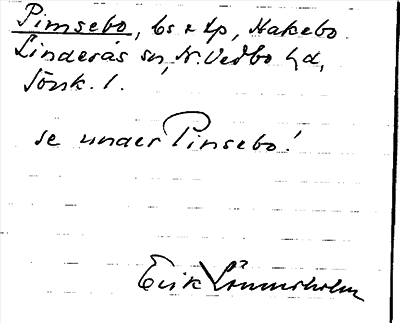 Pimsebo, bs o tp, Hakebo.
Linderås sn, N. Vedbo hd,
Jönk. l.
se under Pinsebo!
Erik Lönnerholm